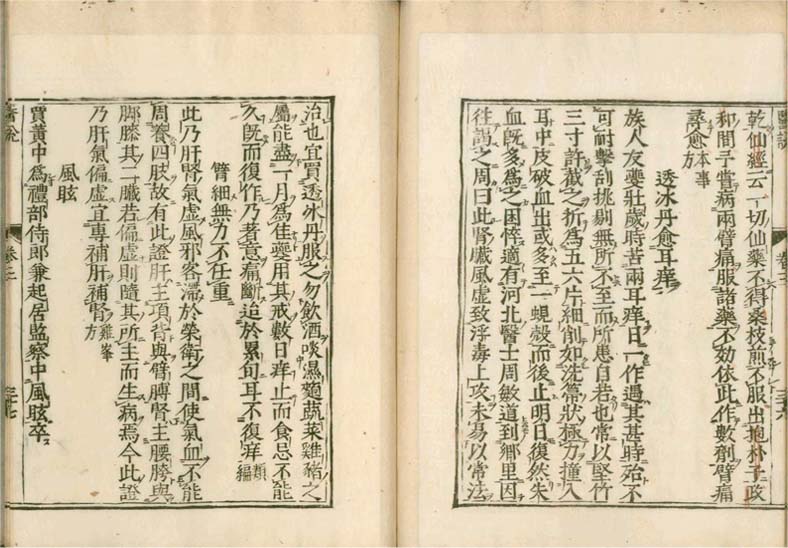 醫說
卷三
三十六
乾仙經云一切仙藥不得桑枝煎不服出抱朴子政
和間予嘗病兩臂痛服諸藥不効依此作數劑臂痛
尋愈本事方
透冰丹愈耳痒
族人友夔壯歲時苦兩耳痒日一作遇其甚時殆不
可耐擊刮挑剔無所不至而所患自若也常以堅竹
三寸許截之折為五六片細削如洗箒狀極力撞入
耳中皮破血出或多至一蜆殼而後止明日復然失
血既多為之困悴適有河北醫士周敏道到鄉里因
往謁之周曰此腎臟風虛致浮毒上攻未易以常法
治也宜買透冰丹服之勿飲酒啖濕麵蔬菜雞豬之
屬能盡一月為佳夔用其戒數日痒止而食忌不能
久既而復作乃著意痛斷迨於累旬耳不復痒類編
臂細無力不任重
此乃肝腎氣虛風邪客滯於榮衛之間使氣血不能
周養四肢故有此證肝主項背與臂膊腎主腰胯與
脚膝其二臟若偏虛則隨其所主而生病焉今此證
乃肝氣偏虛宜專補肝補腎雞峯方
風眩
賈黃中為禮部侍郎兼起居監察中風眩卒
醫說
卷三
三十七